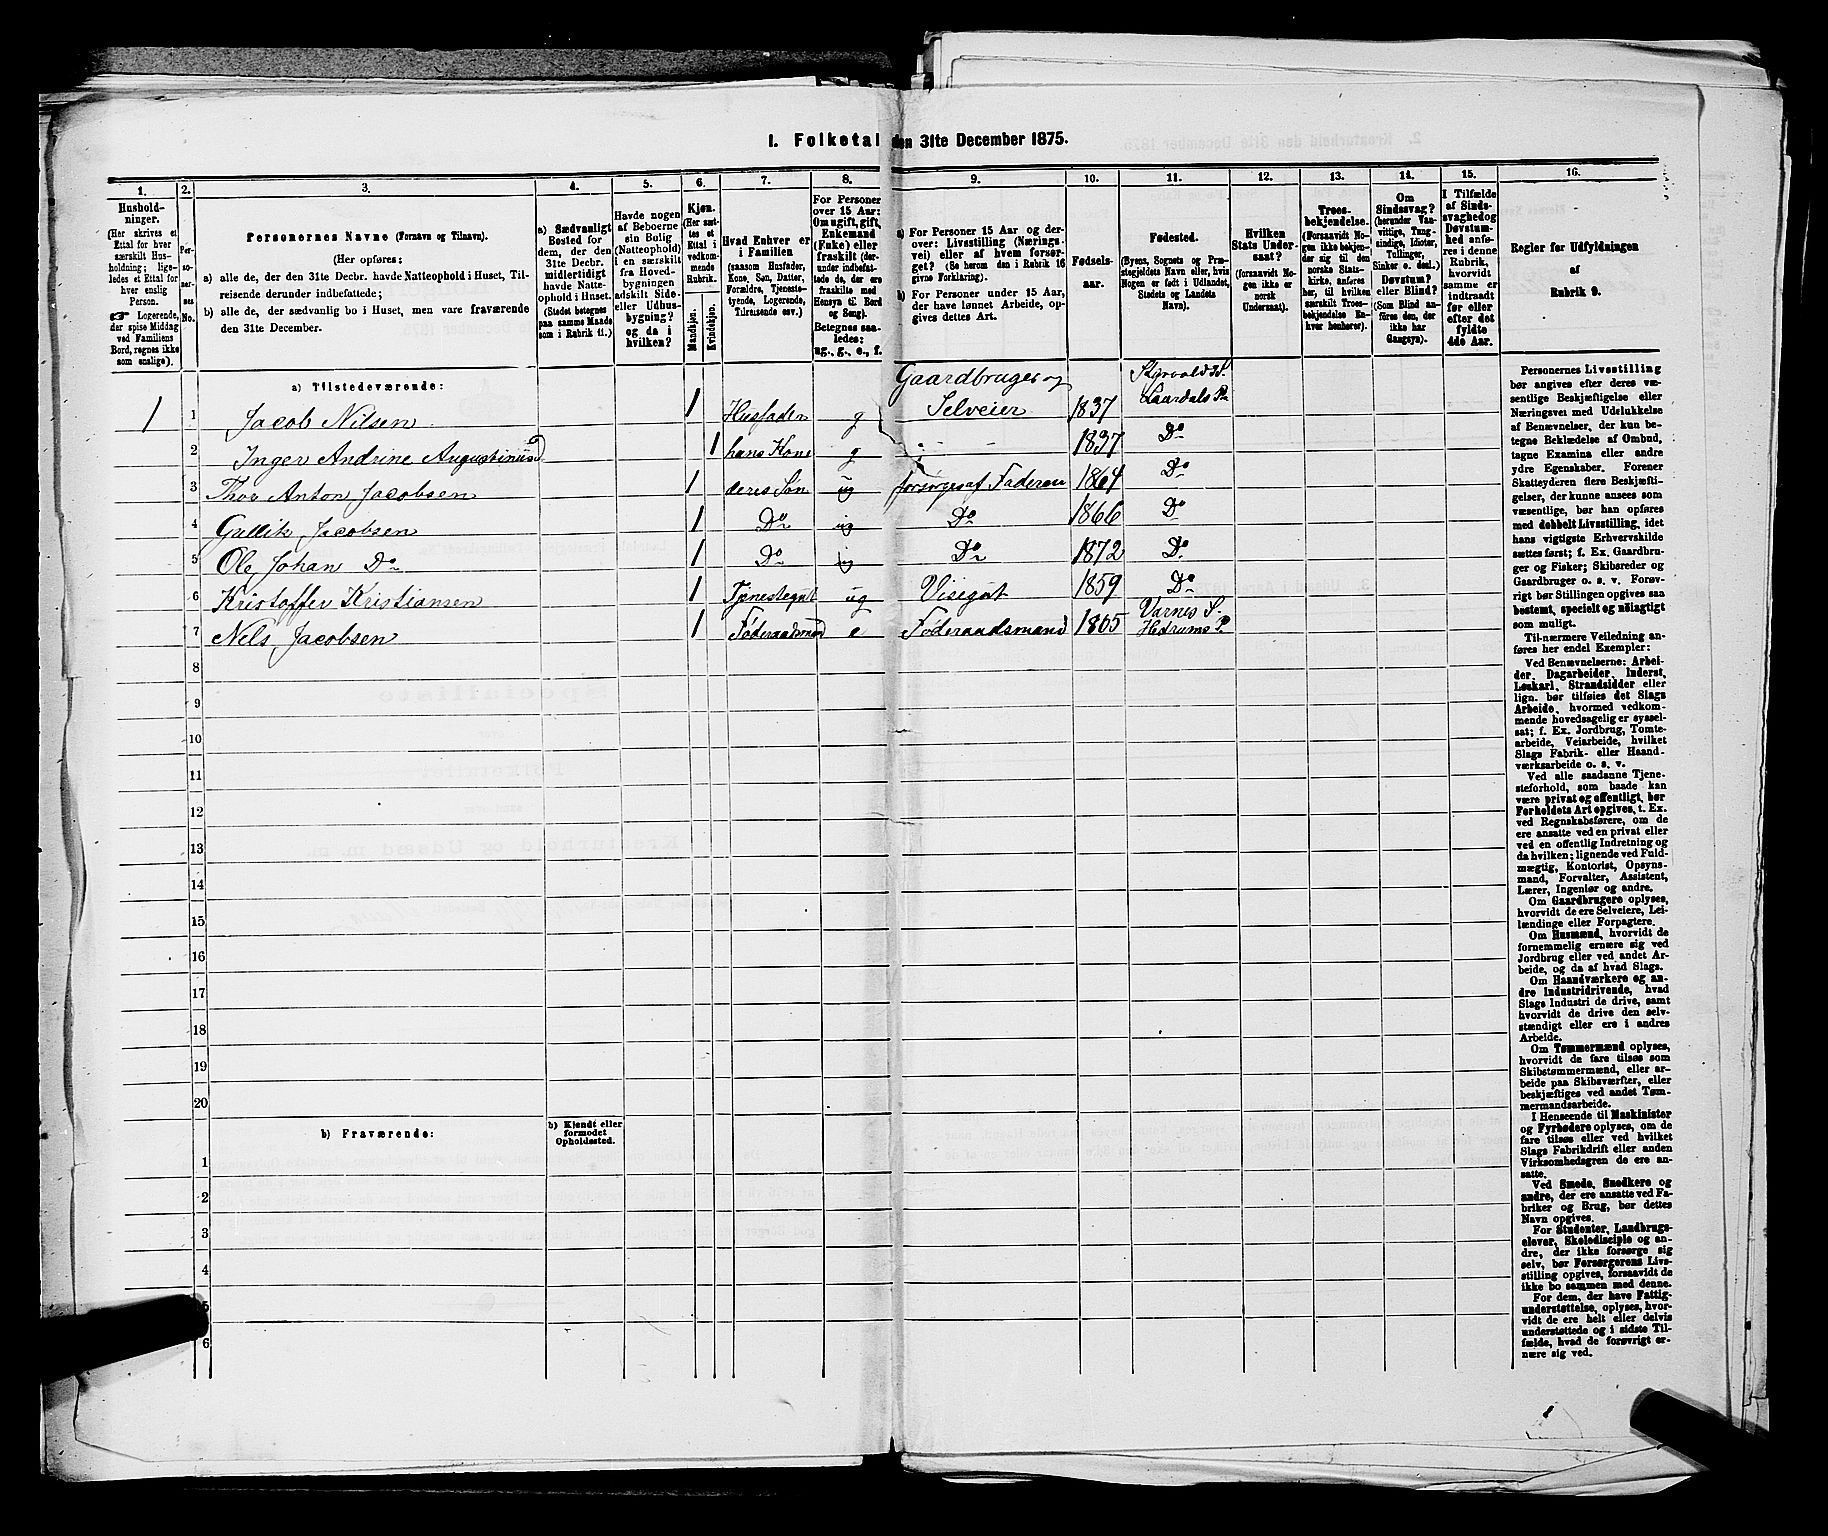 I. Folketal den 31te December 1875.
1. 2. 3. 4. 5. 6. 7. 8. 9. 10. 11. 12. 13. 14. 15. 16.
Hushold-
ninger.
(Her skrives et
Ettal for hver
særskilt Hus-
holdning; lige-
ledes et Ettal for
hver enslig
Person.
☞ Logerende,
der spise Middag
ved Familiens
Bord, regnes ikke
som enslige).
Per-
so-
ner-
nes
No.
Personernes Navne (Fornavn og Tilnavn).
(Her opføres:
a) alle de, der den 31te Decbr. havde Natteophold i Huset, Til-
reisende derunder indbefattede;
b) alle de, der sædvanlig bo i Huset, men vare fraværende
den 31te December.
a) Sædvanligt
Bosted for
dem, der den
31te Decbr.
midlertidigt
havde Natte-
ophold i Huset.
(Stedet betegnes
paa samme Maade
som i Rubrik 11.)
Havde nogen
af Beboerne
sin Bolig
(Natteophold)
i en særskilt
fra Hoved-
bygningen
adskilt Side-
eller Udhus-
bygning?
og da i
hvilken?
Kjøn.
(Her sæt-
tes et
Ettal i
vedkom-
mende
Rubrik.
Mandkjøn.
Kvindekjøn.
Hvad Enhver er
i Familien
(saasom Husfader,
Kone, Søn, Datter,
Forældre, Tjeneste-
tyende, Logerende,
Tilreisende osv.)
For Personer
over 15 Aar:
Om ugift, gift,
Enkemand
(Enke) eller
fraskilt (der-
under indbefat-
tede de, der ere
fraskilte med
Hensyn til Bord
og Seng).
Betegnes saa-
ledes:
ug., g., e., f.
a) For Personer 15 Aar og der-
over: Livsstilling (Nærings-
vei) eller af hvem forsør-
get? (Se herom den i Rubrik 16
givne Forklaring).
b) For Personer under 15 Aar,
der have lønnet Arbeide, op-
gives dettes Art.
Fødsels-
aar.
Fødested.
(Byens, Sognets og Præ-
stegjeldets Navn eller, hvis
Nogen er født i Udlandet,
Stedets og Landets
Navn).
Hvilken
Stats Under-
saat?
(forsaavidt No-
gen ikke er
norsk
Undersaat).
Troes-
bekjendelse.
(Forsaavidt No-
gen ikke bekjen-
der sig til den
norske Stats-
kirke, anføres
her, til hvilken
særskilt Troes-
bekjendelse En-
hver henhører).
Om
Sindssvag?
(herunder Van-
vittige, Tung-
sindige, Idioter,
Tullinger,
Sinker o. desl.)
Døvstum?
eller Blind?
(Som Blind an-
føres den, der
ikke har
Gangsyn).
I Tilfælde
af Sinds-
svaghed og
Døvstum-
hed anfø-
res i denne
Rubrik,
hvorvidt
samme er
indtraadt
før eller
efter det
fyldte
4de Aar.
Regler for Udfyldningen
af
Rubrik 9.
a) Tilstedeværende:
1 1 Jacob Nilsen 1 Husfader g Gaardbruger og Selveier 1837 Laardals P
2 Inger Andrine Augustinusd 1 hans Kone g 1837 Do
3 Thor Anton Jacobsen 1 deres Søn ug forsørges af Faderen 1864 Do
4 Gullik Jacobsen 1 Do ug Do 1866 Do
5 Ole Johan Do 1 Do ug Do 1872 Do
6 Kristoffer Kristiansen 1 Tjenestegut ug Visegut 1859 Do
7 Nels Jacobsen 1 Føderaadsmand e Føderaadsmand 1805 Varnes S. Hedrums P
8
9
10
11
12
13
14
15
16
17
18
19
20
b) Fraværende:
b) Kjendt eller
formodet
Opholdssted.
1
2
3
4
5
6
Personernes Livsstilling
bør angives efter deres væ-
sentlige Beskjæftigelse eller
Næringsvei med Udelukkelse
af Benævnelser, der kun be-
tegne Beklædelse af Ombud,
tagne Examina eller andre
ydre Egenskaber. Forener
Skatteyderen flere Beskjæfti-
gelser, der kunne ansees som
væsentlige, bør han opføres
med dobbelt Livsstilling, idet
hans vigtigste Erhvervskilde
sættes først; f. Ex. Gaardbru-
ger og Fisker; Skibsreder og
Gaardbruger o. s. v. Forøv-
rigt bør Stillingen opgives saa
bestemt, specielt og nøiagtigt
som muligt.
Til nærmere Veiledning an-
føres her endel Exempler:
Ved Benævnelserne: Arbei-
der, Dagarbeider, Inderst,
Løskarl, Strandsidder eller
lign. bør tilføies det Slags
Arbeide, hvormed vedkom-
mende hovedsagelig er syssel-
sat; f. Ex. Jordbrug, Tomte-
arbeide, Veiarbeide, hvilket
Slags Fabrik- eller Haand-
værksarbeide o. s. v.
Ved alle saadanne Tjene-
steforhold, som baade kan
være privat og offentligt, bør
Forholdets Art opgives, t. Ex.
ved Regnskabsførere, om de
ere ansatte ved en privat eller
ved en offentlig Indretning og
da hvilken; lignende ved Fuld-
mægtig, Kontorist, Opsyns-
mand, Forvalter, Assistent,
Lærer, Ingeniør og andre.
Om Gaardbrugere oplyses,
hvorvidt de ere Selveiere, Lei-
lendinge eller Forpagtere.
Om Husmænd, hvorvidt de
fornemmelig ernære sig ved
Jordbrug eller ved andet Ar-
beide, og da af hvad Slags.
Om Haandværkere og an-
dre Industridrivende, hvad
Slags Industri de drive, samt
hvorvidt de drive den selv-
stændigt eller ere i andres
Arbeide.
Om Tømmermænd oplyses,
hvorvidt de fare tilsøs som
Skibstømmermænd, eller ar-
beide paa Skibsværfter, eller
beskjæftiges ved andet Tøm-
mermandsarbeide.
I Henseende til Maskinister
og Fyrbødere oplyses, om de
fare tilsøs eller ved hvilket
Slags Fabrikdrift eller anden
Virksomhedsgren de ere an-
satte.
Ved Smede, Snedkere og
andre, der ere ansatte ved Fa-
briker og Brug, bør dettes
Navn opgives.
For Studenter, Landbrugs-
elever, Skoledisciple og an-
dre, der ikke forsørge sig
selv, bør Forsørgerens Livs-
stilling opgives, forsaavidt de
ikke bo sammen med denne.
For dem, der have Fattig-
understøttelse, oplyses, hvor-
vidt de ere helt eller delvis
understøttede og i sidste Til-
fælde, hvad de forøvrigt er-
nære sig ved.